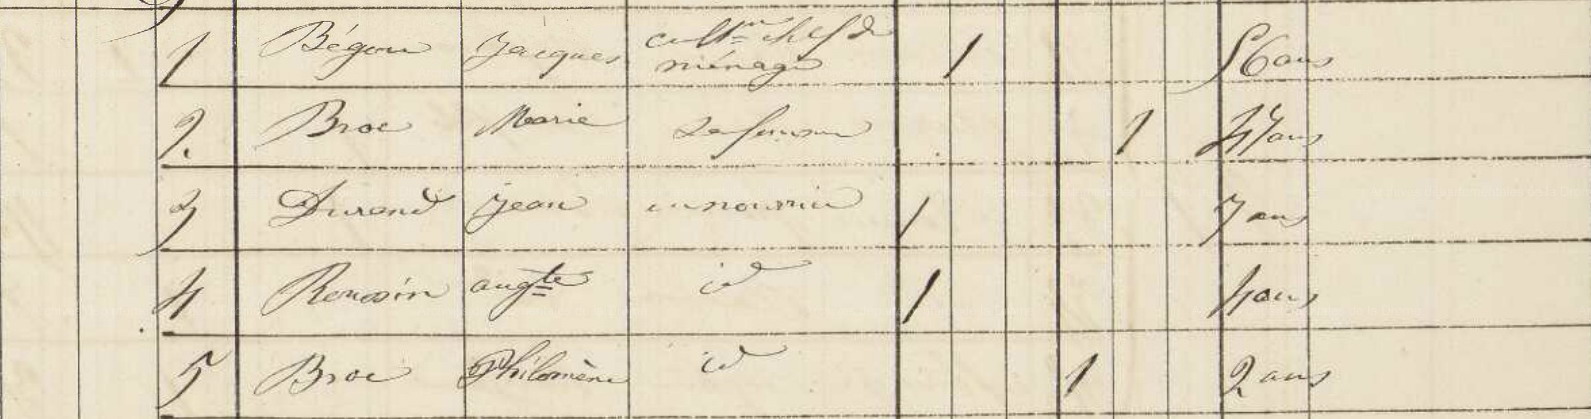 1 Bégou Jacques cultr chef de
ménage 1 56 ans
2. Broc Marie sa femme 1 47 ans
3 Durand Jean en nourrice 1 7 ans
4 Roussin augte id 1 4 ans
5 Broc Philomène id 1 2 ans